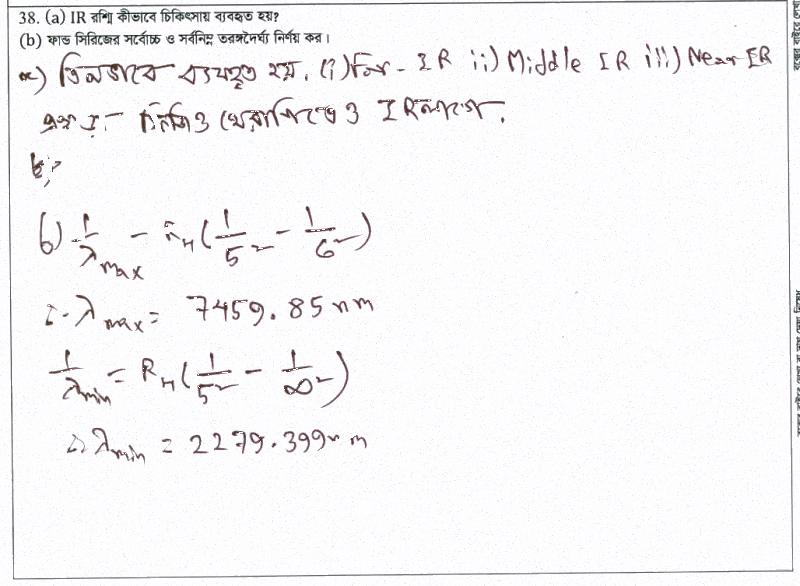 38. (a) IR রশ্মি কীভাবে চিকিৎসায় ব্যবহৃত হয়?
(b) ফান্ড সিরিজের সর্বোচ্চ ও সর্বনিম্ন তরঙ্গদৈর্ঘ্য নির্ণয় কর।
a) তিনভাবে ব্যবহৃত হয়. (i) Far - IR ii) Middle IR iii) Near IR
থেরাপিতেও IR লাগে.
b)
b) 1/λmax = RH (1/5² - 1/6²)
∴ λmax = 7459.85 nm
1/λmin = RH (1/5² - 1/∞²)
∴ λmin = 2279.399 nm